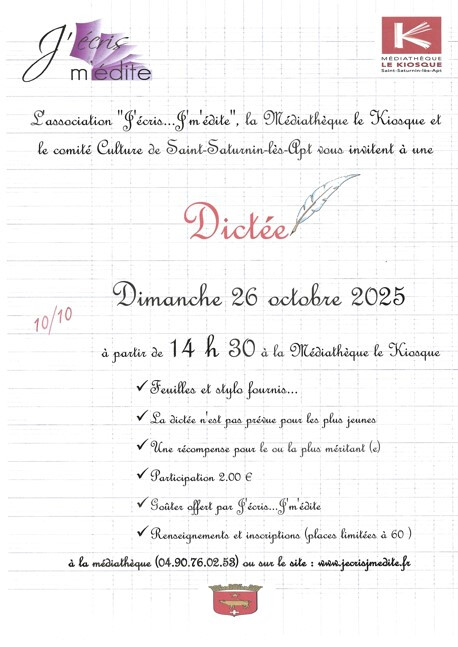 J'écris
m'édite
MÉDIATHÈQUE
LE KIOSQUE
Saint-Saturnin-lès-Apt
L'association "J'écris...J'm'édite", la Médiathèque le Kiosque et
le comité Culture de Saint-Saturnin-lès-Apt vous invitent à une
Dictée
Dimanche 26 octobre 2025
10/10
à partir de 14 h 30 à la Médiathèque le Kiosque
✓ Feuilles et stylo fournis...
✓ La dictée n'est pas prévue pour les plus jeunes
✓ Une récompense pour le ou la plus méritant (e)
✓ Participation 2.00 €
✓ Goûter offert par J'écris...J'm'édite
✓ Renseignements et inscriptions (places limitées à 60 )
à la médiathèque (04.90.76.02.53) ou sur le site : www.jecrisjmedite.fr